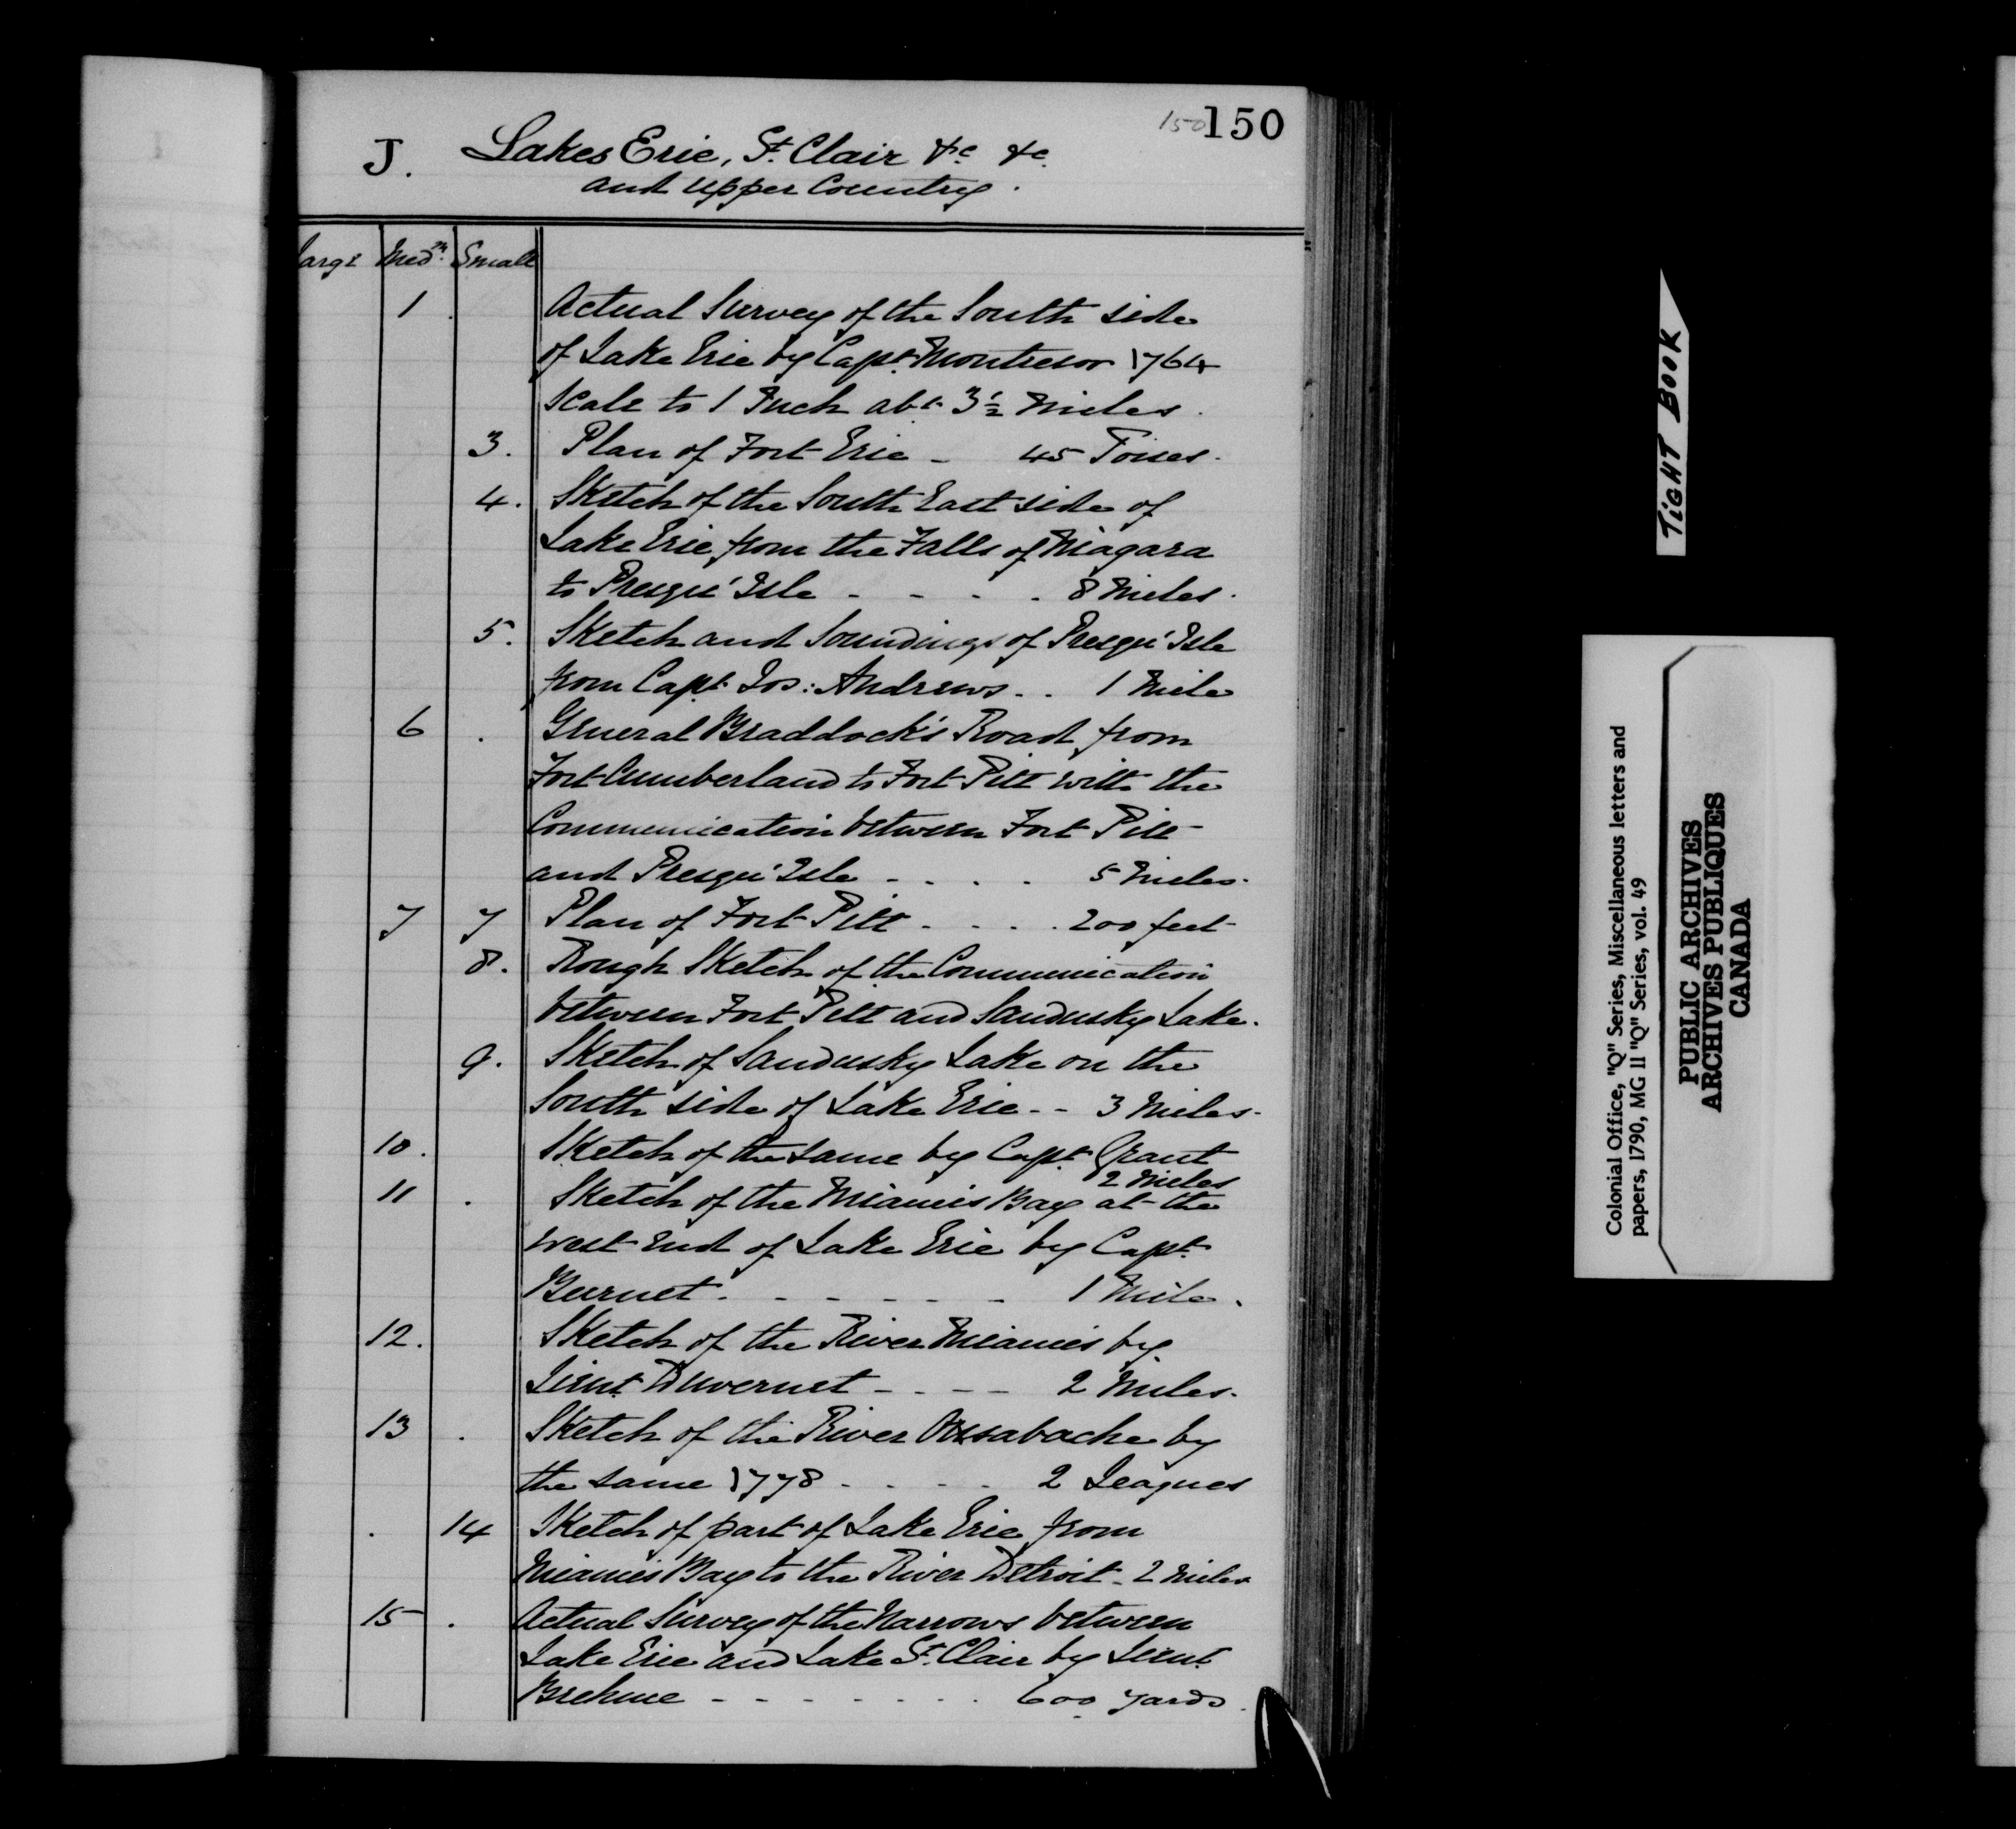 150 150
J. Lakes Erie, St. Clair &c &c.
and upper Country.
large Medm. Small
1 . Actual Survey of the South side
of Lake Erie by Capt. Montresor 1764
Scale to 1 Inch abt. 3½ Miles.
3. Plan of Fort Erie - 45 Toises.
4. Sketch of the South East side of
Lake Erie from the Falls of Niagara
to Presqu'Isle - - - - 8 Miles.
5. Sketch and Soundings of Presqu'Isle
from Capt. Jos: Andrews - - 1 Mile
6 . General Braddock's Road from
Fort Cumberland to Fort Pitt with the
Communication between Fort Pitt
and Presqu'Isle - - - - 5 Miles.
7 7 Plan of Fort Pitt - - - - 200 feet
8. Rough Sketch of the Communication
between Fort Pitt and Sandusky Lake.
9. Sketch of Sandusky Lake on the
South side of Lake Erie - - 3 Miles.
10. Sketch of the same by Capt. Grant
2 Miles
11 . Sketch of the Miamis Bay at the
West End of Lake Erie by Capt.
Burnet - - - - - - 1 Mile.
12. Sketch of the River Miamis by
Lieut. Duvernet - - - - 2 Miles.
13 . Sketch of the River by
the same 1778 - - - - 2 Leagues
. 14 Sketch of part of Lake Erie from
Miamis Bay to the River Detroit - 2 Miles
15 . Actual Survey of the Narrows between
Lake Erie and Lake St. Clair by Lieut.
Brehme - - - - - - - 600 yards.
TIGHT BOOK
Colonial Office, "Q" Series, Miscellaneous letters and
papers, 1790, MG 11 "Q" Series, vol. 49
PUBLIC ARCHIVES
ARCHIVES PUBLIQUES
CANADA